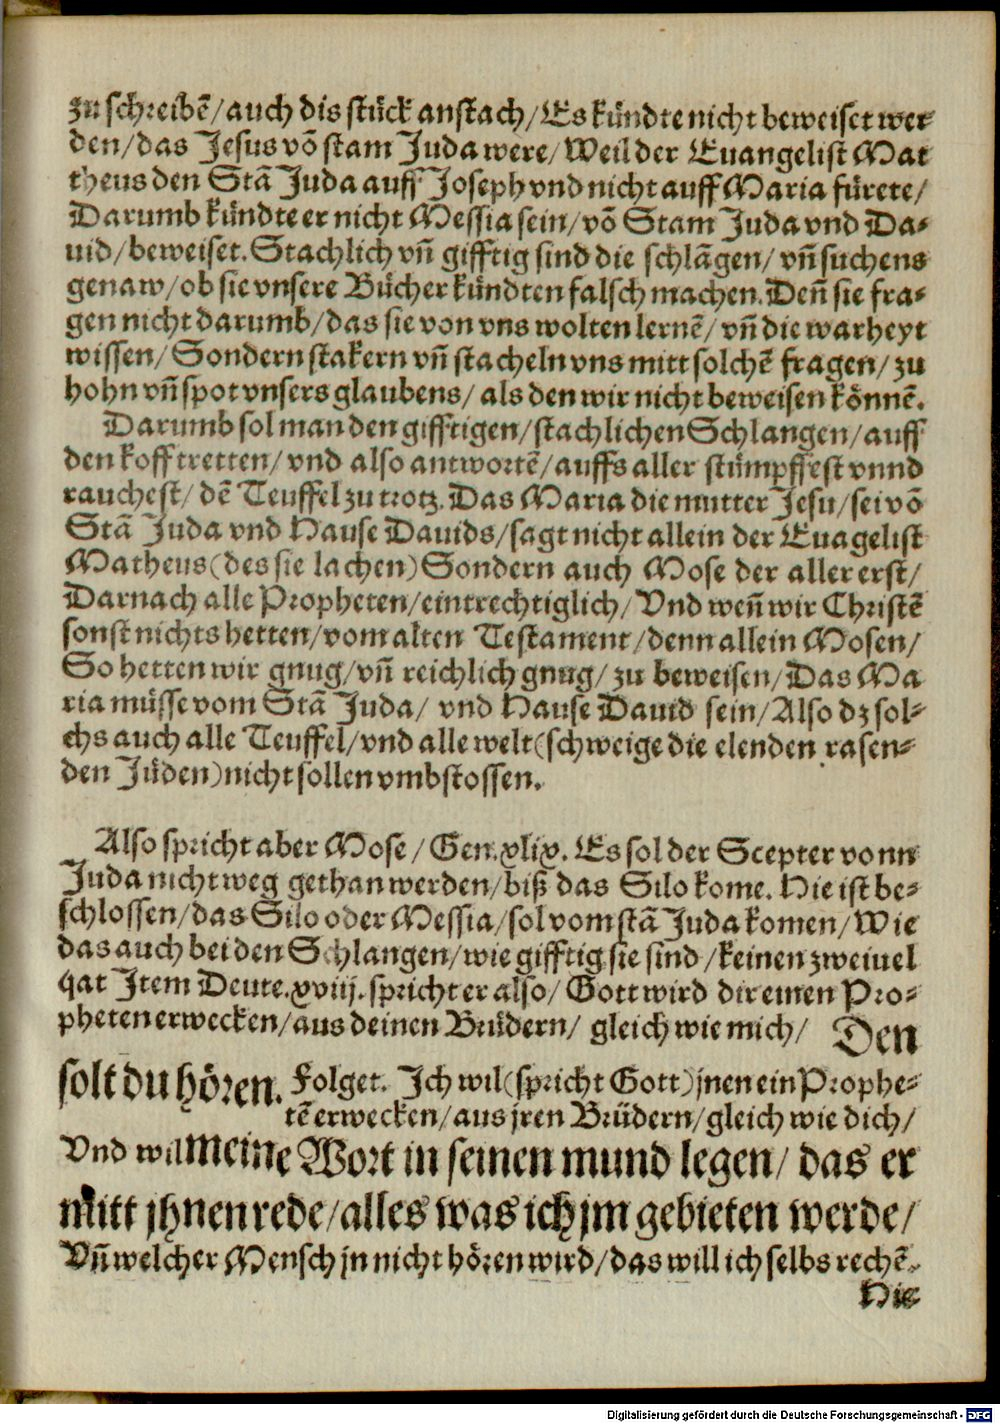 zu schreibẽ/auch dis stück anstach/Es kündte nicht beweiset wer⸗
den/das Jesus võ stam Juda were/Weil der Euangelist Mat
theus den Stã Juda auff Joseph vnd nicht auff Maria fürete/
Darumb kündte er nicht Messia sein/võ Stam Juda vnd Da⸗
uid/beweiset. Stachlich vñ gifftig sind die schlãgen/vñ suchens
genaw/ob sie vnsere Bücher kündten falsch machen. Deñ sie fra⸗
gen nicht darumb/das sie von vns wolten lernẽ/vñ die warheyt
wissen/Sondern stakern vñ stacheln vns mitt solchẽ fragen/zu
hohn vñ spot vnsers glaubens/als den wir nicht beweisen könnẽ.
Darumb sol man den gifftigen/stachlichen Schlangen/auff
den kopff tretten/vnd also antwortẽ/auffs aller stümpffest vnnd
rauchest/dẽ Teuffel zu trotz. Das Maria die mutter Jesu/sei võ
Stã Juda vnd Hause Dauids/sagt nicht allein der Euãgelist
Matheus(des sie lachen)Sondern auch Mose der aller erst/
Darnach alle Propheten/eintrechtiglich/Vnd weñ wir Christẽ
sonst nichts hetten/vom alten Testament/denn allein Mosen/
So hetten wir gnug/vñ reichlich gnug/zu beweisen/Das Ma
ria müsse vom Stã Juda/vnd Hause Dauid sein/Also dz sol⸗
chs auch alle Teuffel/vnd alle welt(schweige die elenden rasen⸗
den Jüden)nicht sollen vmbstossen.
Also spricht aber Mose/Gen.xlix. Es sol der Scepter vonn
Juda nicht weg gethan werden/biß das Silo kome. Hie ist be⸗
schlossen/das Silo oder Messia/sol vom stã Juda komen/Wie
das auch bei den Schlangen/wie gifftig sie sind/keinen zweiuel
hat Item Deute.xviij. spricht er also/Gott wird dir einen Pro⸗
pheten erwecken/aus deinen Brüdern/gleich wie mich/Den
solt du hören. Folget. Ich wil(spricht Gott)jnen ein Prophe⸗
tẽ erwecken/aus jren Brüdern/gleich wie dich/
Vnd wil meine Wort in seinen mund legen/das er
mitt jhnen rede/alles was ich jm gebieten werde/
Vñ welcher Mensch jn nicht hören wird/das will ich selbs rechẽ.
Hie⸗
Digitalisierung gefördert durch die Deutsche Forschungsgemeinschaft - DFG